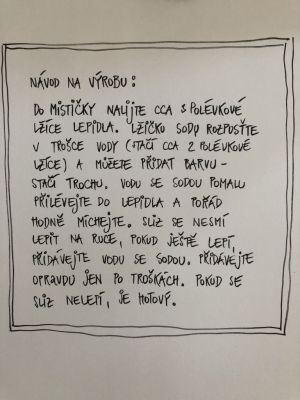 NÁVOD NA VÝROBU:
DO MISTIČKY NALIJTE CCA 5 POLÉVKOVÉ
LŽÍCE LEPIDLA. LŽIČKU SODY ROZPUSŤTE
V TROŠCE VODY (STAČÍ CCA 2 POLÉVKOVÉ
LŽÍCE) A MŮŽETE PŘIDAT BARVU -
STAČÍ TROCHU. VODU SE SODOU POMALU
PŘILÉVEJTE DO LEPIDLA A POŘÁD
HODNĚ MÍCHEJTE. SLIZ SE NESMÍ
LEPIT NA RUCE, POKUD JEŠTĚ LEPÍ,
PŘIDÁVEJTE VODU SE SODOU. PŘIDÁVEJTE
OPRAVDU JEN PO TROŠKÁCH. POKUD SE
SLIZ NELEPÍ, JE HOTOVÝ.